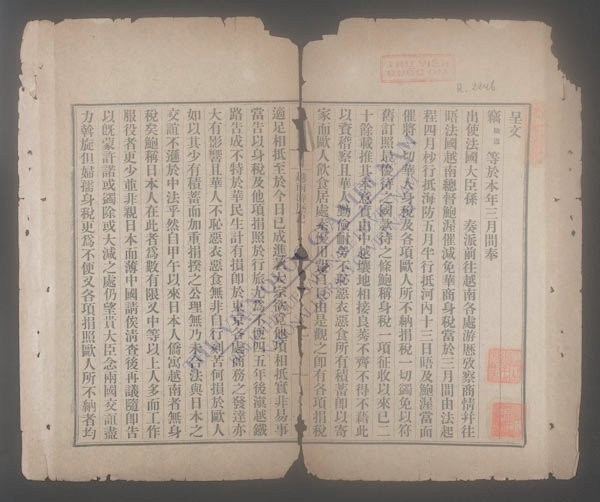 呈文
竊 等於本年三月間奉
出使法國大臣孫 奏派前往越南各處游歷攷察商情幷往
晤法國越南總督鮑渥催減免華商身稅當於三月間由法起
程四月杪行抵海防五月半行抵河內十三日晤及鮑渥當面
催將一切華人身稅及各項歐人所不納捐稅一切蠲免以符
舊訂照最優待之國款待之條鮑稱身稅一項征收以來已二
十餘載推其來意實由中越壤地相接良莠不齊不得不藉此
以資稽察且華人勤儉耐勞不恥惡衣惡食所有積蓄即以寄
家而歐人飲食居處 由是觀之即有各項捐稅
適足相抵至於今日已成進款大宗欲覓他項相抵實非易事
當告以身稅及他項捐照於行旅尤爲不便四五年後滇越鐵
路告成不特於華民生計有損即於東京各處商務之發達亦
大有影響且華人不恥惡衣惡食無非自行刻苦何損於歐人
如以其少有積蓄而加重捐揆之公理無乃不合法與日本之
交誼不遜於中法乎然自甲午以來日本人僑寓越南者無身
稅矣鮑稱日本人在此者爲數有限又中等以上人多而工作
服役者更少並非親日本而薄中國請俟消查後再議隨即告
以旣蒙許諾或蠲除或大減之處仍望貴大臣念兩國交誼盡
力斡旋但婦孺身稅更爲不便又各項捐照歐人所不納者均
THƯ VIỆN
R.2246